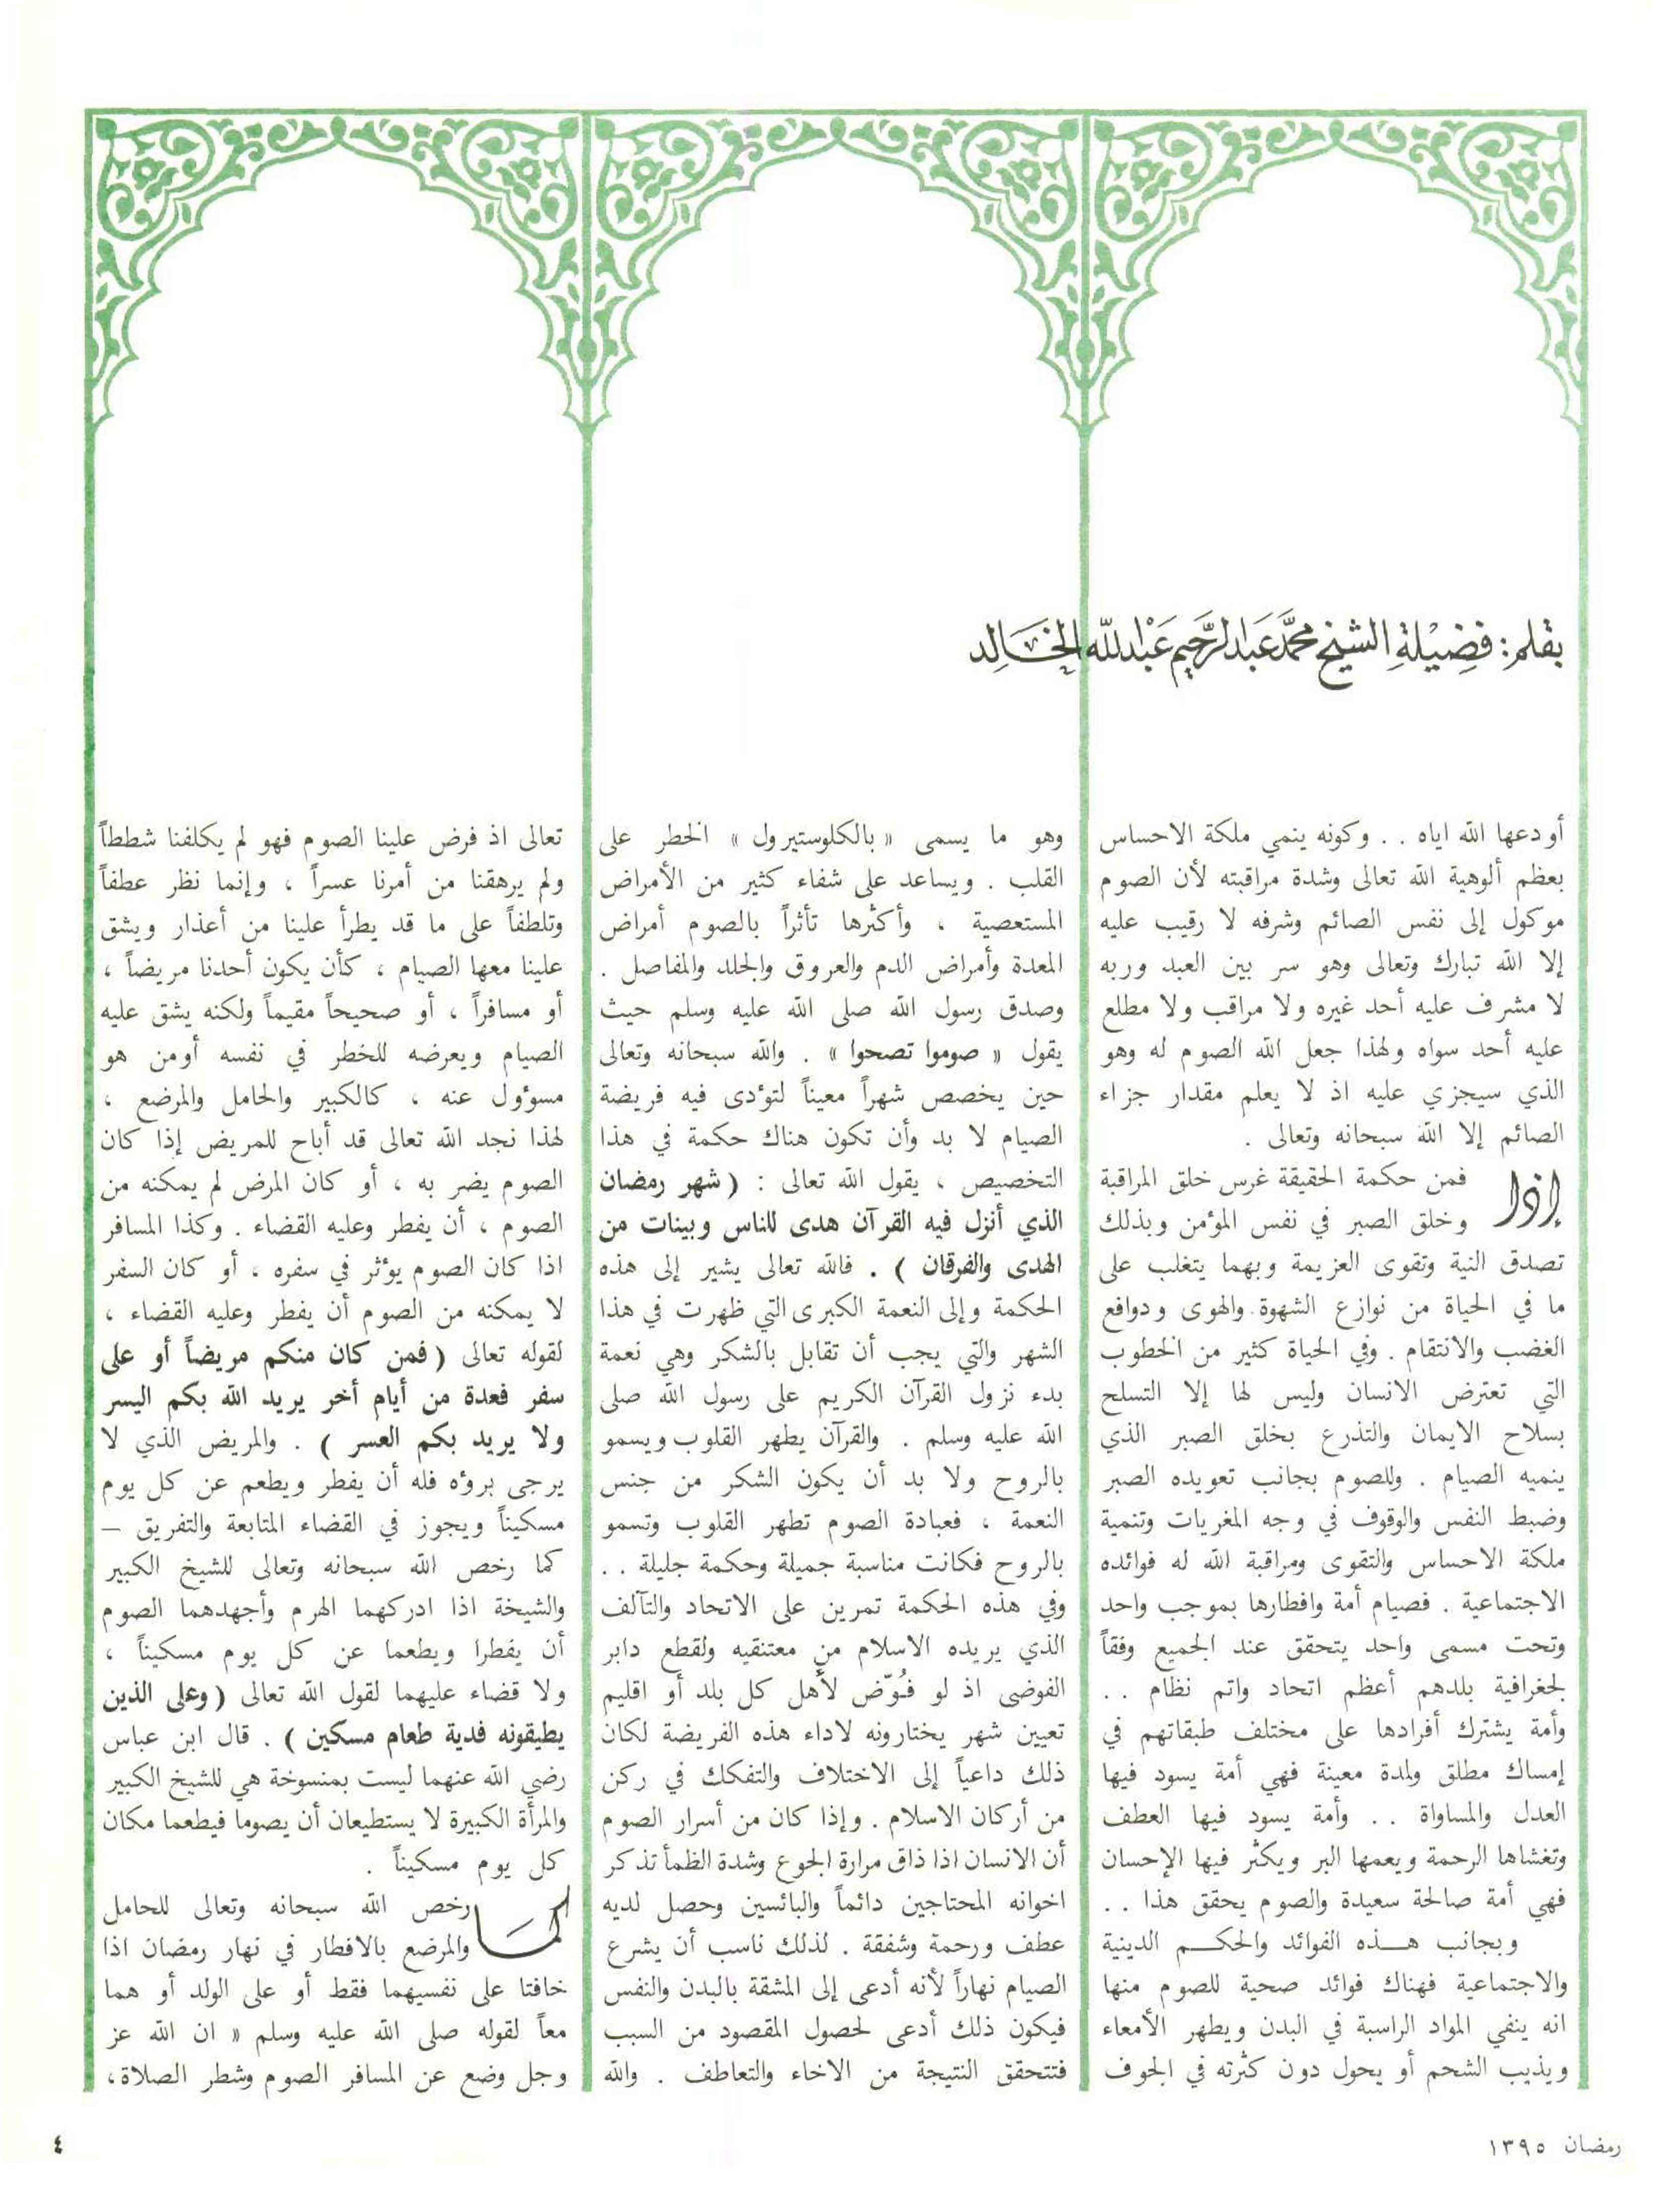 بقلم: فضيلة الشيخ محمد عبد الرحيم عبد الله الخالد
أودعها الله اياه . . وكونه ينمي ملكة الاحساس
بعظم ألوهية الله تعالى وشدة مراقبته لأن الصوم
موكول إلى نفس الصائم وشرفه لا رقيب عليه
إلا الله تبارك وتعالى وهو سر بين العبد وربه
لا مشرف عليه أحد غيره ولا مراقب ولا مطلع
عليه أحد سواه ولهذا جعل الله الصوم له وهو
الذي سيجزي عليه اذ لا يعلم مقدار جزاء
الصائم إلا الله سبحانه وتعالى .
إذا فمن حكمة الحقيقة غرس خلق المراقبة
وخلق الصبر في نفس المؤمن وبذلك
تصدق النية وتقوى العزيمة وبهما يتغلب على
ما في الحياة من نوازع الشهوة والهوى ودوافع
الغضب والانتقام . وفي الحياة كثير من الخطوب
التي تعترض الانسان وليس لها إلا التسلح
بسلاح الايمان والتذرع بخلق الصبر الذي
ينميه الصيام . وللصوم بجانب تعويده الصبر
وضبط النفس والوقوف في وجه المغريات وتنمية
ملكة الاحساس والتقوى ومراقبة الله له فوائده
الاجتماعية . فصيام أمة وافطارها بموجب واحد
وتحت مسمى واحد يتحقق عند الجميع وفقاً
لجغرافية بلدهم أعظم اتحاد واتم نظام . .
وأمة يشترك أفرادها على مختلف طبقاتهم في
إمساك مطلق ولمدة معينة فهي أمة يسود فيها
العدل والمساواة . . وأمة يسود فيها العطف
وتغشاها الرحمة ويعمها البر ويكثر فيها الإحسان
فهي أمة صالحة سعيدة والصوم يحقق هذا . .
وبجانب هــذه الفوائد والحكــم الدينية
والاجتماعية فهناك فوائد صحية للصوم منها
انه ينفي المواد الراسبة في البدن ويطهر الأمعاء
ويذيب الشحم أو يحول دون كثرته في الجوف
وهو ما يسمى « بالكلوستيرول » الخطر على
القلب . ويساعد على شفاء كثير من الأمراض
المستعصية ، وأكثرها تأثراً بالصوم أمراض
المعدة وأمراض الدم والعروق والجلد والمفاصل .
وصدق رسول الله صلى الله عليه وسلم حيث
يقول « صوموا تصحوا » . والله سبحانه وتعالى
حين يخصص شهراً معيناً لتؤدى فيه فريضة
الصيام لا بد وأن تكون هناك حكمة في هذا
التخصيص ، يقول الله تعالى : ( شهر رمضان
الذي أنزل فيه القرآن هدى للناس وبينات من
الهدى والفرقان ) . فالله تعالى يشير إلى هذه
الحكمة وإلى النعمة الكبرى التي ظهرت في هذا
الشهر والتي يجب أن تقابل بالشكر وهي نعمة
بدء نزول القرآن الكريم على رسول الله صلى
الله عليه وسلم . والقرآن يطهر القلوب ويسمو
بالروح ولا بد أن يكون الشكر من جنس
النعمة ، فعبادة الصوم تطهر القلوب وتسمو
بالروح فكانت مناسبة جميلة وحكمة جليلة . .
وفي هذه الحكمة تمرين على الاتحاد والتآلف
الذي يريده الاسلام من معتنقيه ولقطع دابر
الفوضى اذ لو فُوّض لأهل كل بلد أو اقليم
تعيين شهر يختارونه لاداء هذه الفريضة لكان
ذلك داعياً إلى الاختلاف والتفكك في ركن
من أركان الاسلام . وإذا كان من أسرار الصوم
أن الانسان اذا ذاق مرارة الجوع وشدة الظمأ تذكر
اخوانه المحتاجين دائماً والبائسين وحصل لديه
عطف ورحمة وشفقة . لذلك ناسب أن يشرع
الصيام نهاراً لأنه أدعى إلى المشقة بالبدن والنفس
فيكون ذلك أدعى لحصول المقصود من السبب
فتتحقق النتيجة من الاخاء والتعاطف . والله
تعالى اذ فرض علينا الصوم فهو لم يكلفنا شططاً
ولم يرهقنا من أمرنا عسراً ، وإنما نظر عطفاً
وتلطفاً على ما قد يطرأ علينا من أعذار ويشق
علينا معها الصيام ، كأن يكون أحدنا مريضاً ،
أو مسافراً ، أو صحيحاً مقيماً ولكنه يشق عليه
الصيام ويعرضه للخطر في نفسه أومن هو
مسؤول عنه ، كالكبير والحامل والمرضع ،
لهذا نجد الله تعالى قد أباح للمريض إذا كان
الصوم يضر به ، أو كان المرض لم يمكنه من
الصوم ، أن يفطر وعليه القضاء . وكذا المسافر
اذا كان الصوم يؤثر في سفره ، أو كان السفر
لا يمكنه من الصوم أن يفطر وعليه القضاء ،
لقوله تعالى ( فمن كان منكم مريضاً أو على
سفر فعدة من أيام أخر يريد الله بكم اليسر
ولا يريد بكم العسر ) . والمريض الذي لا
يرجى برؤه فله أن يفطر ويطعم عن كل يوم
مسكيناً ويجوز في القضاء المتابعة والتفريق –
كما رخص الله سبحانه وتعالى للشيخ الكبير
والشيخة اذا ادركهما الهرم وأجهدهما الصوم
أن يفطرا ويطعما عن كل يوم مسكيناً ،
ولا قضاء عليهما لقول الله تعالى ( وعلى الذين
يطيقونه فدية طعام مسكين ) . قال ابن عباس
رضي الله عنهما ليست بمنسوخة هي للشيخ الكبير
والمرأة الكبيرة لا يستطيعان أن يصوما فيطعما مكان
كل يوم مسكيناً .
كما رخص الله سبحانه وتعالى للحامل
والمرضع بالافطار في نهار رمضان اذا
خافتا على نفسيهما فقط أو على الولد أو هما
معاً لقوله صلى الله عليه وسلم « ان الله عز
وجل وضع عن المسافر الصوم وشطر الصلاة ،
رمضان ١٣٩٥
٤